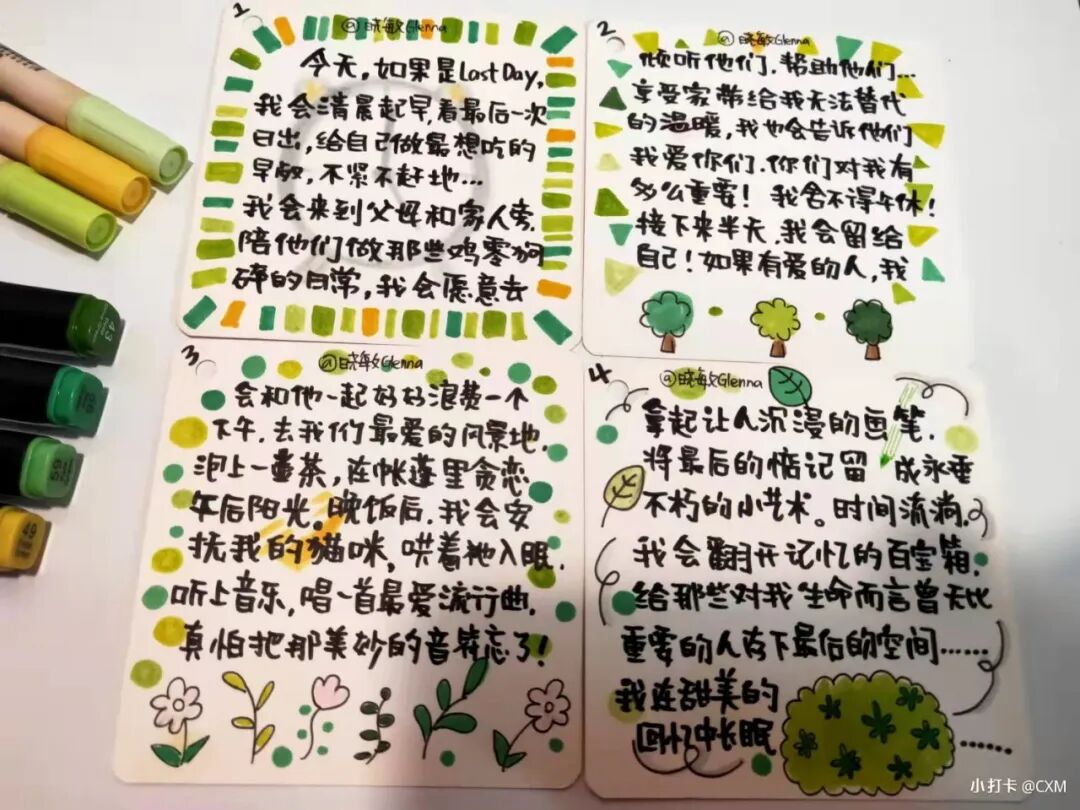 1
@晓敏Glenna
今天,如果是Last Day,
我会清晨起早,看最后一次
日出,给自己做最想吃的
早饭,不紧不赶地…
我会来到父母和家人旁.
陪他们做那些鸡零狗
碎的日常,我会愿意去
2
@晓敏Glenna
倾听他们.帮助他们…
享受家带给我无法替代
的温暖,我也会告诉他们
我爱你们.你们对我有
多么重要!我舍不得午休!
接下来半天.我会留给
自己!如果有爱的人,我
3
@晓敏Glenna
会和他一起好好浪费一个
下午.去我们最爱的风景地.
泡上一壶茶,在帐篷里贪恋
午后阳光。晚饭后.我会安
抚我的猫咪,哄着她入眠.
听上音乐,唱一首最爱流行曲.
真怕把那美妙的音符忘了!
4
@晓敏Glenna
拿起让人沉浸的画笔.
将最后的惦记留成永垂
不朽的小艺术。时间流淌.
我会翻开记忆的百宝箱.
给那些对我生命而言曾无比
重要的人留下最后的空间……
我在甜美的
回忆中长眠……
43
49
小打卡 @CXM